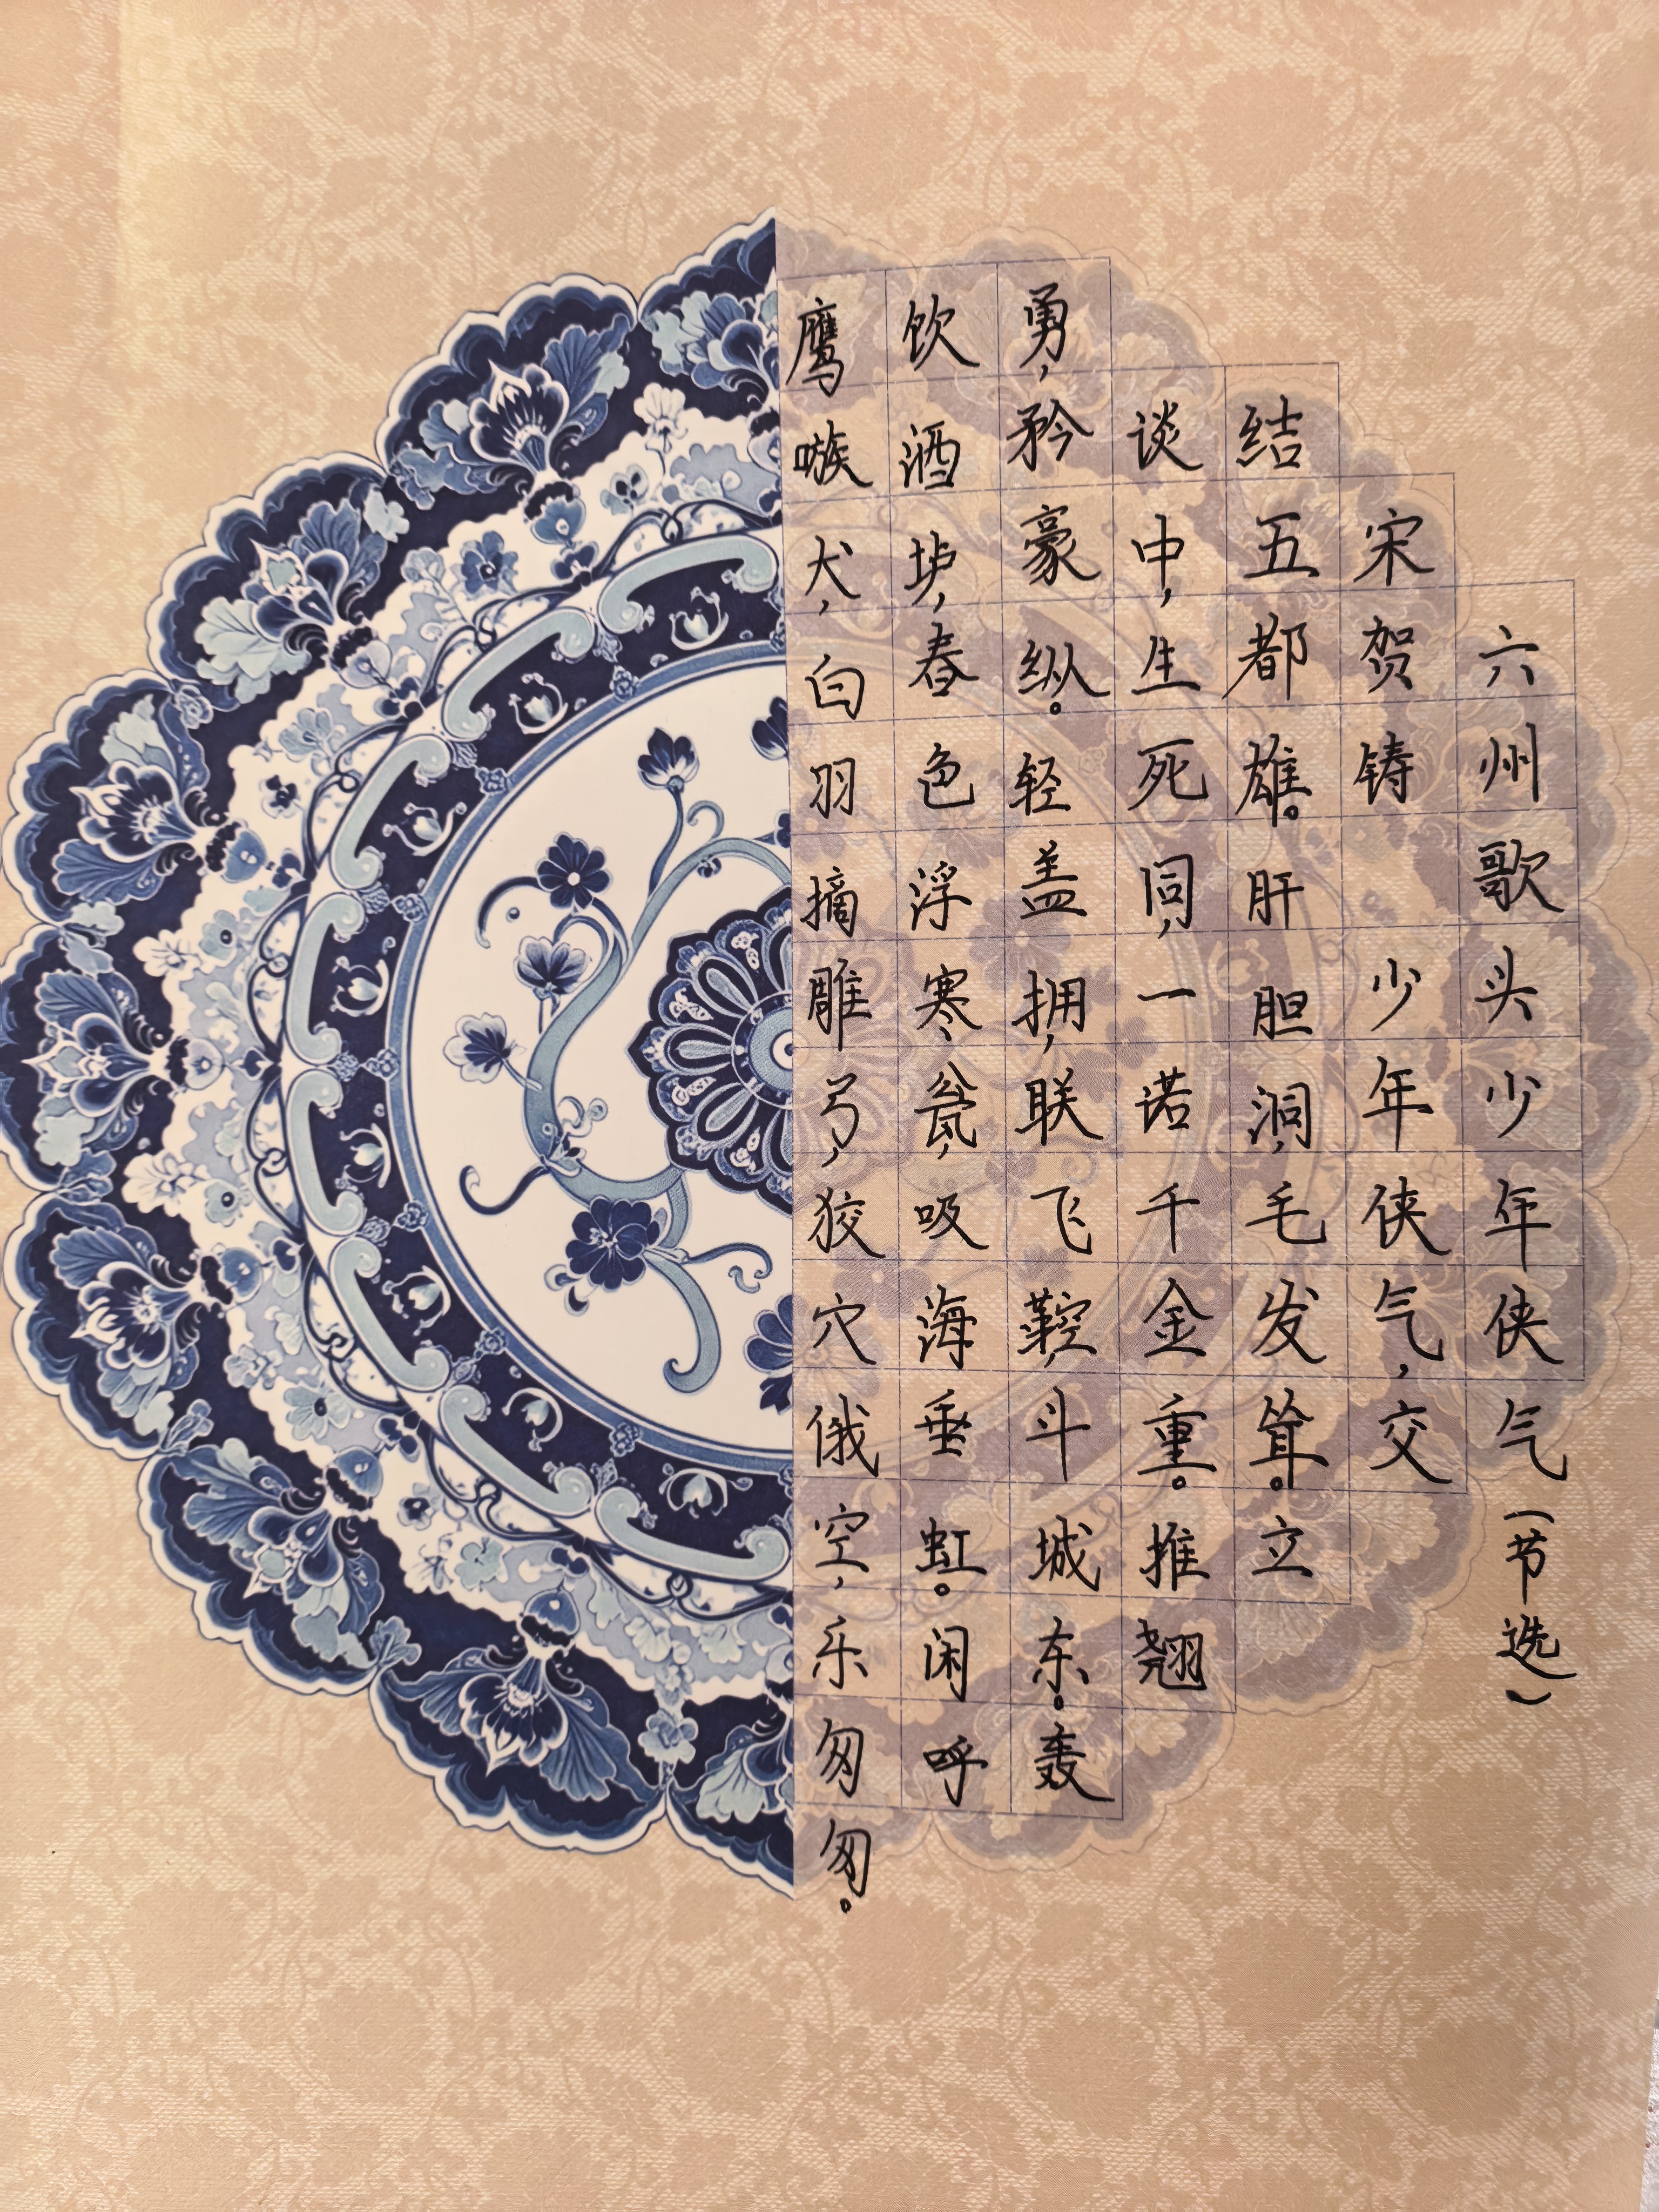 六州歌头少年侠气(节选)
宋贺铸 少年侠气,交
结五都雄。肝胆洞,毛发耸。立
谈中,生死同,一诺千金重。推翘
勇,矜豪纵。轻盖拥,联飞鞚,斗城东。轰
饮酒垆,春色浮寒瓮,吸海垂虹。闲呼
鹰嗾犬,白羽摘雕弓,狡穴俄空,乐匆匆。